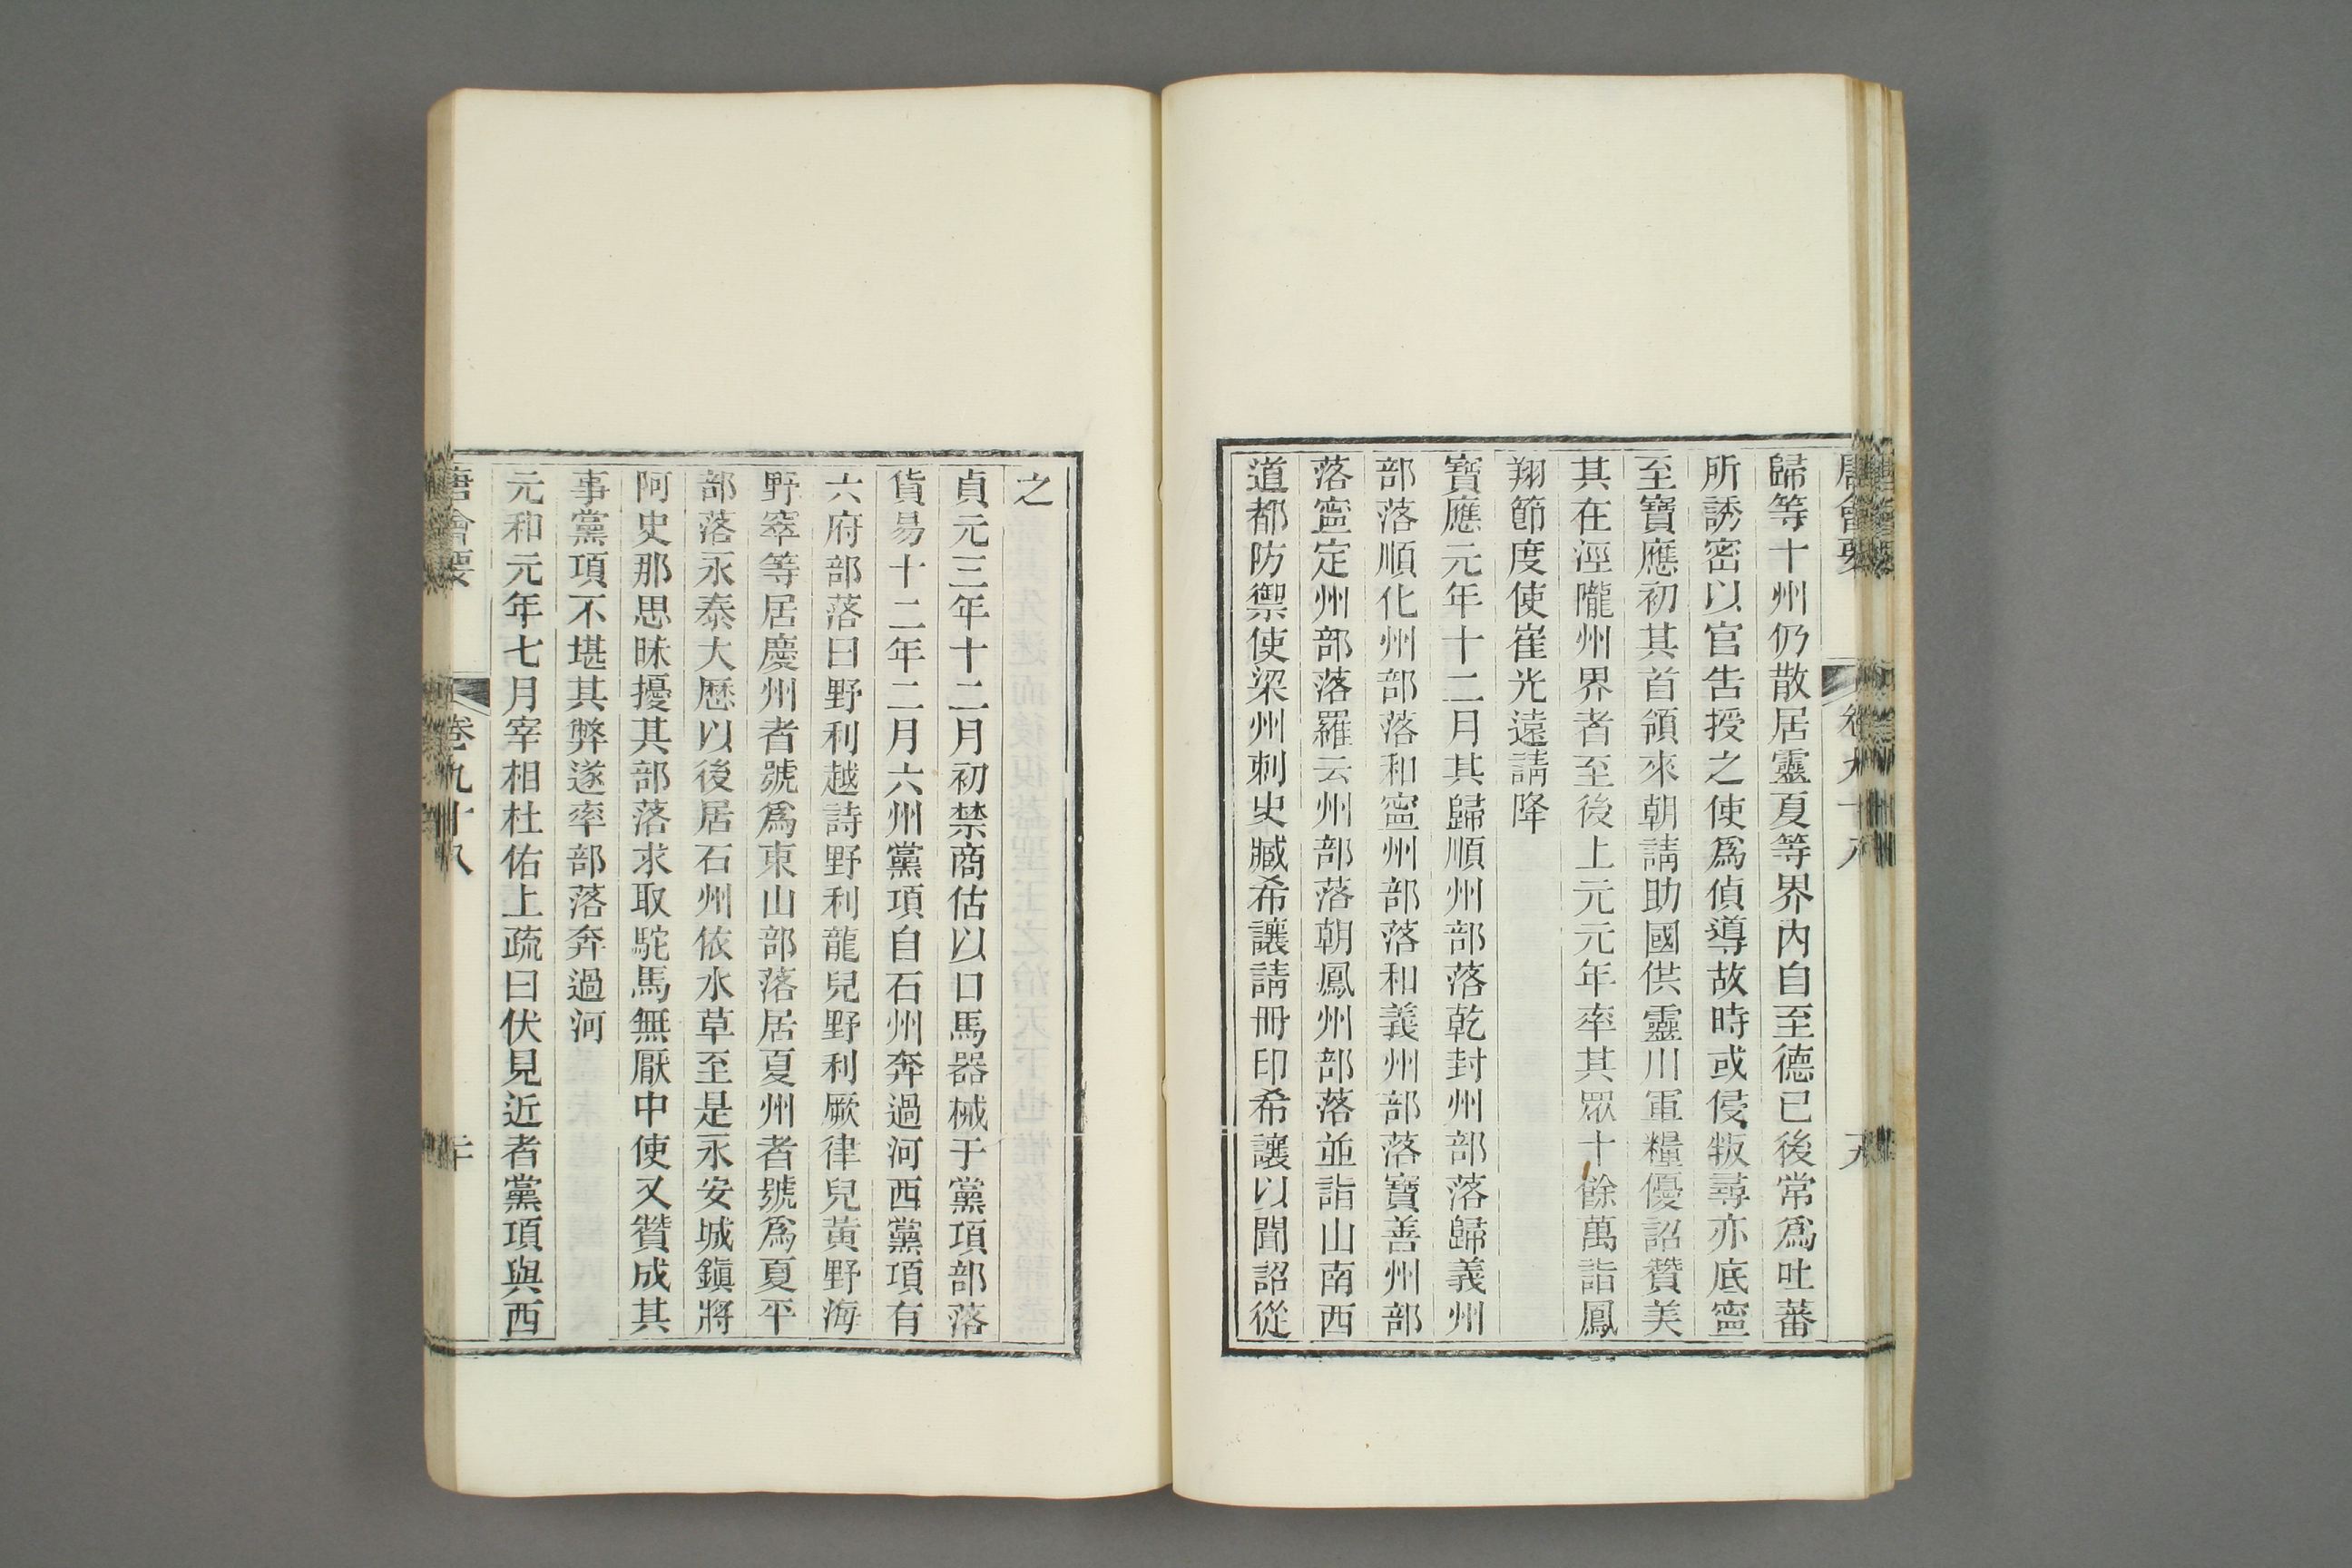 唐會要 卷九十八 九
歸等十州仍散居靈夏等界內自至德已後常爲吐蕃
所誘密以官告授之使爲偵導故時或侵叛尋亦底寧
至寶應初其首領來朝請助國供靈川軍糧優詔贊美
其在涇隴州界者至後上元元年率其眾十餘萬詣鳳
翔節度使崔光遠請降
寶應元年十二月其歸順州部落乾封州部落歸義州
部落順化州部落和寧州部落和義州部落寶善州部
落寧定州部落羅云州部落朝鳳州部落並詣山南西
道都防禦使梁州刺史臧希讓請冊印希讓以聞詔從
之
貞元三年十二月初禁商估以口馬器械于黨項部落
貨易十二年二月六州黨項自石州奔過河西黨項有
六府部落曰野利越詩野利龍兒野利厥律兒黃野海
野窣等居慶州者號爲東山部落居夏州者號爲夏平
部落永泰大歷以後居石州依水草至是永安城鎭將
阿史那思昧擾其部落求取駝馬無厭中使又贊成其
事黨項不堪其弊遂率部落奔過河
元和元年七月宰相杜佑上疏曰伏見近者黨項與西
唐會要 卷九十八